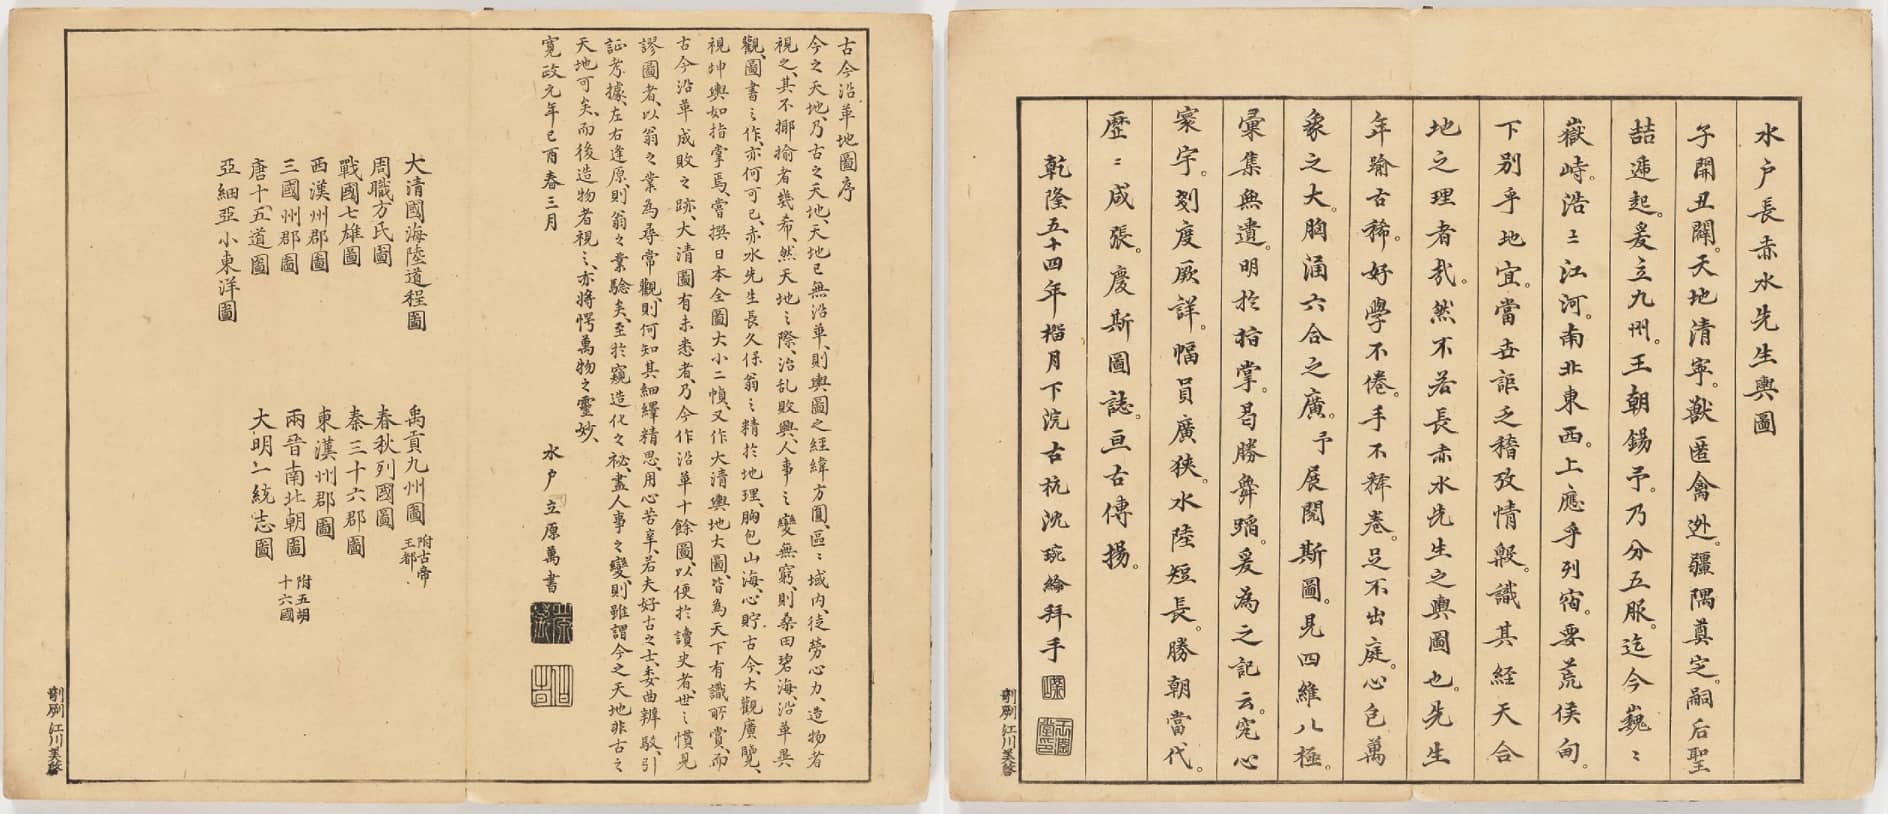 水戸長赤水先生輿圖
子開丑闢。天地清寧。獸匿禽逃。疆隅奠定。嗣后聖
喆遞起。爰立九州。王朝錫予。乃分五服。迄今巍〻
嶽峙。浩〻江河。南北東西。上應乎列宿。要荒侯甸。
下別乎地宜。當世詎乏稽攷情殷。識其經天合
地之理者哉。然不若長赤水先生之輿圖也。先生
年踰古稀。好學不倦。手不釋卷。足不出庭。心包萬
象之大。胸涵六合之廣。予展閱斯圖。見四維八極。
彙集無遺。明於指掌。曷勝舞蹈。爰為之記云。究心
寰宇。刻度厥詳。幅員廣狹。水陸短長。勝朝當代。
歷〻咸張。慶斯圖誌。亘古傳揚。
乾隆五十四年榴月下浣古杭沈琬綸拜手
剞劂 江川美啓
古今沿革地圖序
今之天地、乃古之天地、天地已無沿革、則輿圖之經緯方圓、區〻域內、徒勞心力、造物者
視之、其不揶揄者幾希、然天地之際、治乱敗興、人事之變無窮、則桑田碧海、沿革異
觀、圖書之作、亦何可已、赤水先生長久保翁之精於地理、胸包山海、心貯古今、大觀廣覽、
視坤輿如指掌焉、嘗撰日本全圖大小二幀、又作大清輿地大圖、皆為天下有識所賞、而
古今沿革成敗之跡、大清圖有未悉者、乃今作沿革十餘圖、以便於讀史者、世之慣見
謬圖者、以翁之業為尋常觀、則何知其細繹精思、用心苦辛、若夫好古之士、委曲辨駁、引
証考據、左右逢原、則翁之業驗矣、至於窺造化之祕、盡人事之變、則雖謂今之天地非古之
天地可矣、而後造物者視之、亦將愕萬物之靈妙、
寛政元年己酉春三月
水戸立原萬書
大清國海陸道程圖
禹貢九州圖 附古帝王都
周職方氏圖
春秋列國圖
戰國七雄圖
秦三十六郡圖
西漢州郡圖
東漢州郡圖
三國州郡圖
兩晉南北朝圖 附五胡十六國
唐十五道圖
大明一統志圖
亞細亞小東洋圖
剞劂 江川美啓